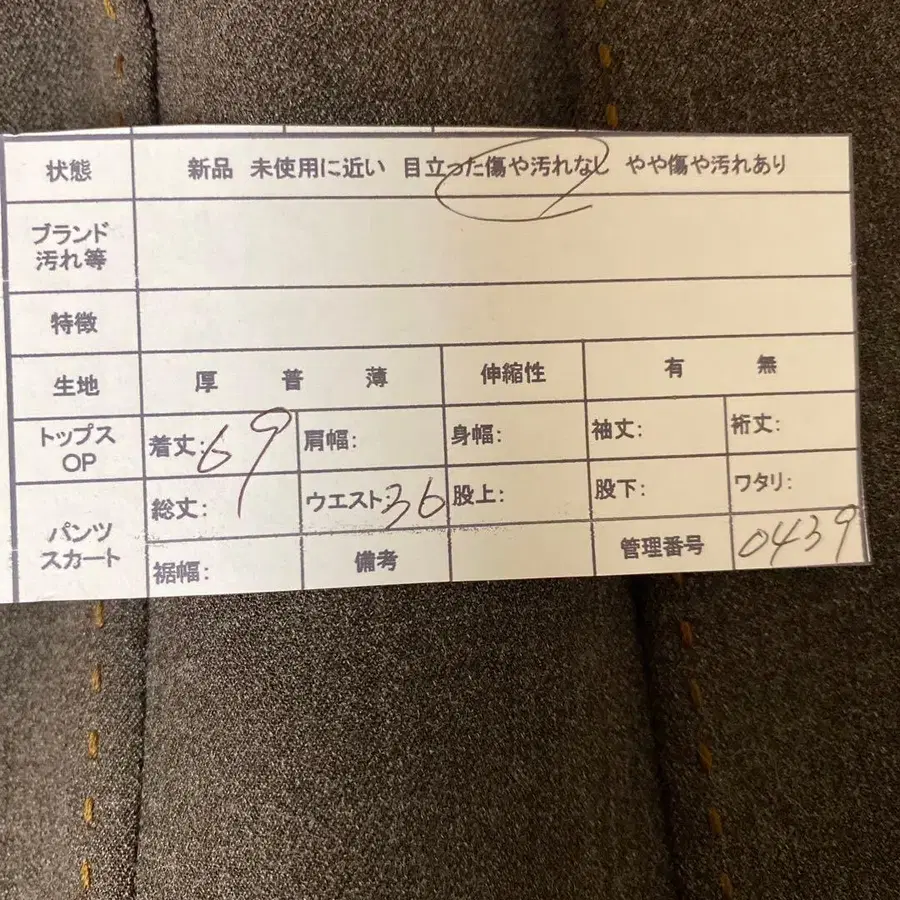 状態 新品 未使用に近い 目立った傷や汚れなし やや傷や汚れあり
ブランド
汚れ等
特徴
生地 厚 普 薄 伸縮性 有 無
トップス
OP
着丈:69 肩幅: 身幅: 袖丈: 裄丈:
パンツ
スカート
総丈: ウエスト:36 股上: 股下: ワタリ:
裾幅: 備考 管理番号 0439